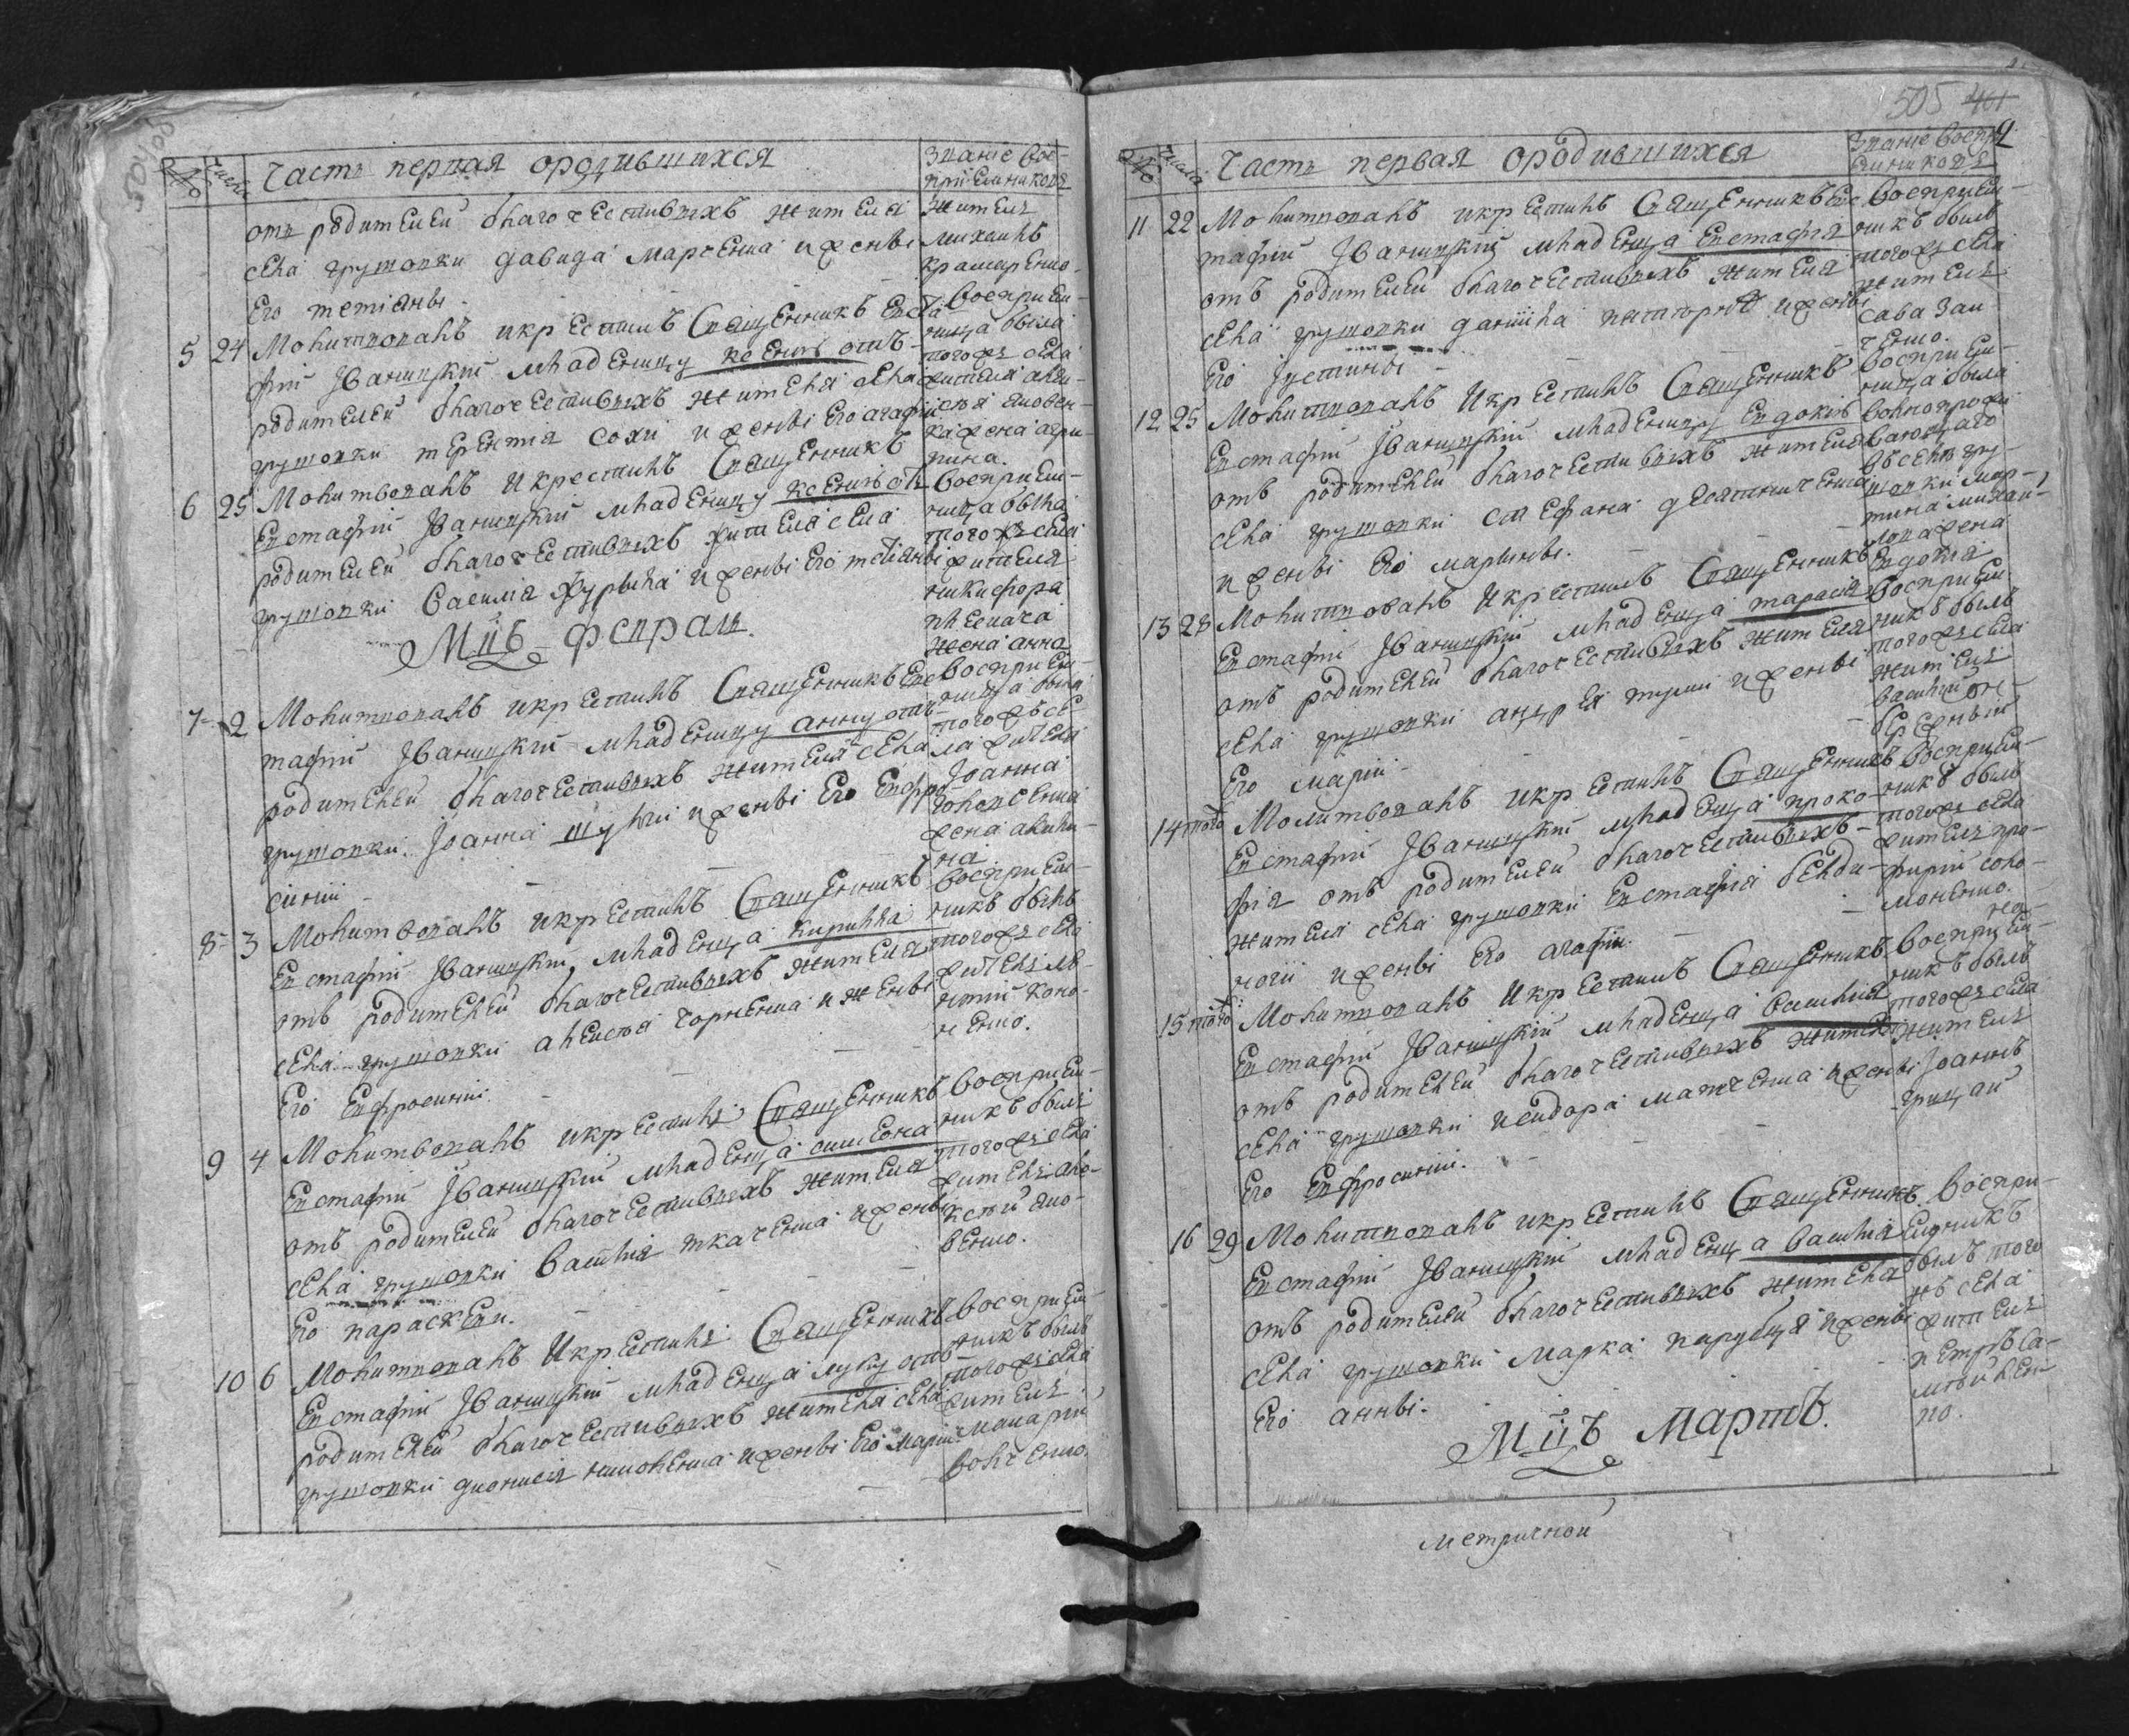 Часть первая ородившихся
Званіе вос-
пріемниковъ
отъ родителей благочестивыхъ жителя
села грушовки давида марченка и жены
Его тетіаны.
житель
михаилъ
крамаренко.
5 24 Молитвовалъ икрестилъ Священникъ Евста
фій Іваницкій младеницу ксенію отъ
родителей благочестивыхъ жителя села
грушовки терентія сохи и жены Его агафіи
воспріем-
ница была
тогожъ села
жителя
жена агри-
пина.
6 25 Молитвовалъ Икрестилъ Священникъ
Евстафій Іваницкій младеницу ксенію отъ
родителей благочестивыхъ жителя села
грушовки Василія и жены Его тетіаны
воспріем-
ница была
тогожъ села
жителя
никифора
жена анна
М-цъ Февраль.
7 2 Молитвовалъ икрестилъ Священникъ Евс
тафій Іваницкій младеницу анну отъ
родителей благочестивыхъ жителя села
грушовки Іоанна шулги и жены Его Евфро
синіи
воспріем-
ница была
тогожъ се
ла жителя
Іоанна
жена акили-
на
8 3 Молитвовалъ икрестилъ Священникъ
Евстафій Іваницкій младенца кирилла
отъ родителей благочестивыхъ жителя
села грушовки алексѣя горненка и жены
Его Евфросиніи.
воспріем-
никъ былъ
тогожъ села
житель ле-
онтій коно-
ненко.
9 4 Молитвовалъ икрестилъ Священникъ
Евстафій Іваницкій младенца симеона
отъ родителей благочестивыхъ жителя
села грушовки василія ткаченка и жены
Его параскеви.
воспріем-
никъ былъ
тогожъ села
житель але-
ксѣй яко-
венко.
10 6 Молитвовалъ Икрестилъ Священникъ
Евстафій Іваницкій младенца луку отъ
родителей благочестивыхъ жителя села
грушовки діонисія и жены Его маріи
воспріем-
никъ былъ
тогожъ села
житель
макарій
вовченко.
505 401
Часть первая ородившихся
Званіе воспрі
емниковъ
11 22 Молитвовалъ икрестилъ Священникъ Евс
тафій Іваницкій младенца Евстафія
отъ родителей благочестивыхъ жителя
села грушовки даніила и жены
Его Іустины
воспріем-
никъ былъ
тогожъ села
житель
сава заи
ченко.
12 25 Молитвовалъ Икрестилъ Священникъ
Евстафій Іваницкій младеницу Евдокію
отъ родителей благочестивыхъ жителя
села грушовки стефана десятниченка
и жены Его марины.
воспріем-
ница была
въ селѣ гру-
шовки мар-
тина михаи-
лова жена
Евдокія
13 28 Молитвовалъ Икрестилъ Священникъ
Евстафій Іваницкій младенца тарасія
отъ родителей благочестивыхъ жителя
села грушовки андрея и жены
Его маріи
воспріем-
никъ былъ
тогожъ села
житель
василій
14 того Молитвовалъ икрестилъ Священникъ
Евстафій Іваницкій младенца проко-
фія отъ родителей благочестивыхъ
жителя села грушовки Евстафія
и жены Его агафіи.
воспріем-
никъ былъ
тогожъ села
житель пор-
фирій соло-
моненко.
15 того Молитвовалъ Икрестилъ Священникъ
Евстафій Іваницкій младенца василія
отъ родителей благочестивыхъ жителя
села грушовки исидора матченка и жены
Его Евфросиніи.
воспріем-
никъ былъ
тогожъ села
житель
Іоаннъ
грицай
16 29 Молитвовалъ икрестилъ Священникъ
Евстафій Іваницкій младенца василія
отъ родителей благочестивыхъ жителя
села грушовки марка и жены
Его анны.
воспрі-
емникъ
былъ того
жъ села
житель
петръ са-
М-цъ Мартъ.
метричной